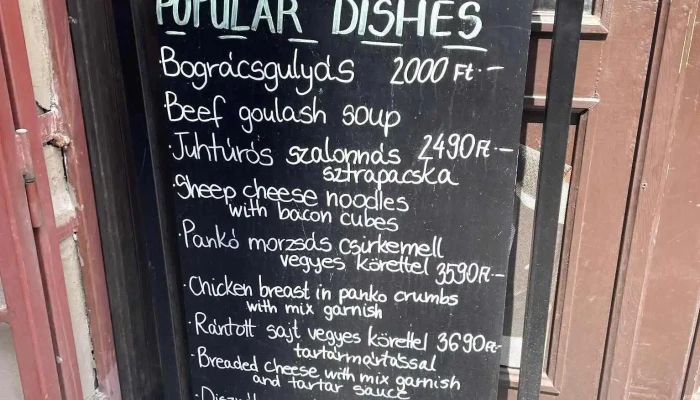 POPULAR DISHES
Bográcsgulyás 2000 Ft.-
Beef goulash soup
Juhtúrós szalonnás 2490 Ft.-
sztrapacska
Sheep cheese noodles
with bacon cubes
Pankó morzsás csirkemell
vegyes körettel 3590 Ft.-
Chicken breast in panko crumbs
with mix garnish
Rántott sajt vegyes körettel 3690 Ft.-
tartármártással
Breaded cheese with mix garnish
and tartar sauce